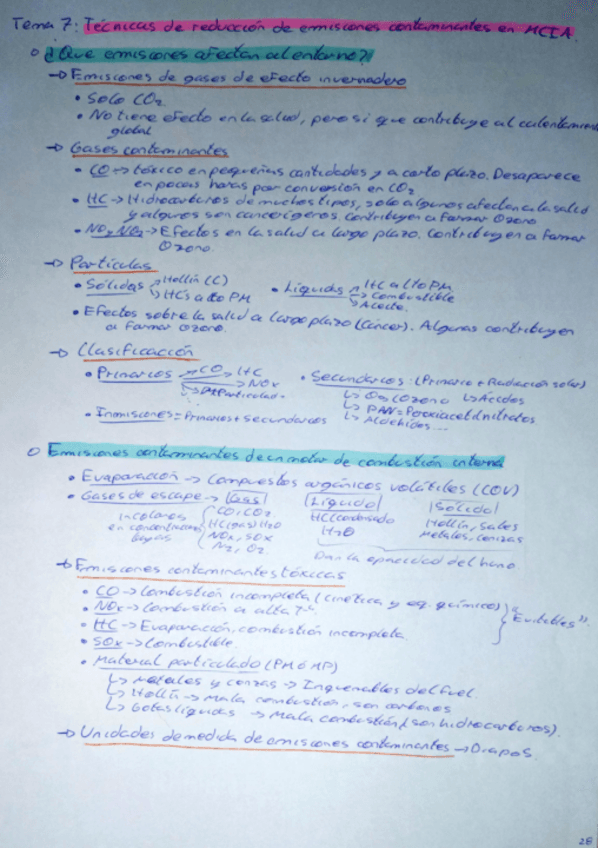 Tema 7: Técnicas de reducción de emisiones contaminantes en MCIA.
¿Que emisiones afectan al entorno?
→ Emisiones de gases de efecto invernadero
• Solo CO2
• No tiene efecto en la salud, pero si que contribuye al calentamiento
global
→ Gases contaminantes
• CO → tóxico en pequeñas cantidades y a corto plazo. Desaparece
en pocas horas por conversión en CO2
• HC → Hidrocarburos de muchos tipos, solo algunos afectan a la salud
y algunos son cancerígenos. Contribuyen a formar Ozono
• NO, NO2 → Efectos en la salud a largo plazo. Contribuyen a formar
Ozono.
→ Partículas
• Sólidas → Hollín (C)
→ HCs alto PM
• Líquidas → HC alto PM
→ Combustible
→ Aceite.
• Efectos sobre la salud a largo plazo (Cáncer). Algunas contribuyen
a formar Ozono.
→ Clasificación
• Primarios → CO → HC
→ NOx
→ Particulad.
• Secundarios: (Primario + Radiación solar)
↳ O3 (Ozono ↳ Ácidos
↳ PAN = Peroxiacetilnitratos
↳ Aldehidos...
• Inmisiones = Primarios + Secundarios
Emisiones contaminantes de un motor de combustión interna
• Evaporación → Compuestos orgánicos volátiles (COV)
• Gases de escape → Gas
incoloros
en concentraciones
bajas
CO, CO2
HC (gas) H2O
NOx, SOx
N2, O2.
Líquido
HC (condensado
H2O
Sólido
Hollín, Sales
Metales, cenizas
Dan la opacidad del humo
→ Emisiones contaminantes tóxicas
• CO → Combustión incompleta (cinética y eq. químico)
• NOx → Combustión a alta Tª.
• HC → Evaporación, combustión incompleta.
"Evitables".
• SOx → Combustible.
• Material particulado (PM ó MP)
↳ Metales y cenizas → Inquemables del fuel
↳ Hollín → Mala combustión, son carbones
↳ Gotas líquidas → Mala combustión (son hidrocarburos).
→ Unidades de medida de emisiones contaminantes → Diapos.
28